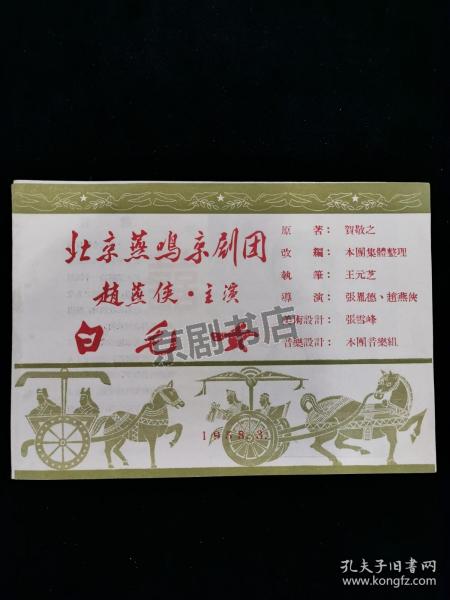 北京燕鸣京剧团
趙燕侠·主演
白毛女
原著：賀敬之
改編：本團集體整理
執筆：王元芝
導演：張胤德、趙燕俠
美術設計：張雪峰
音樂設計：本團音樂組
京剧书店
1958.3.
孔夫子旧书网
www.kongfz.com